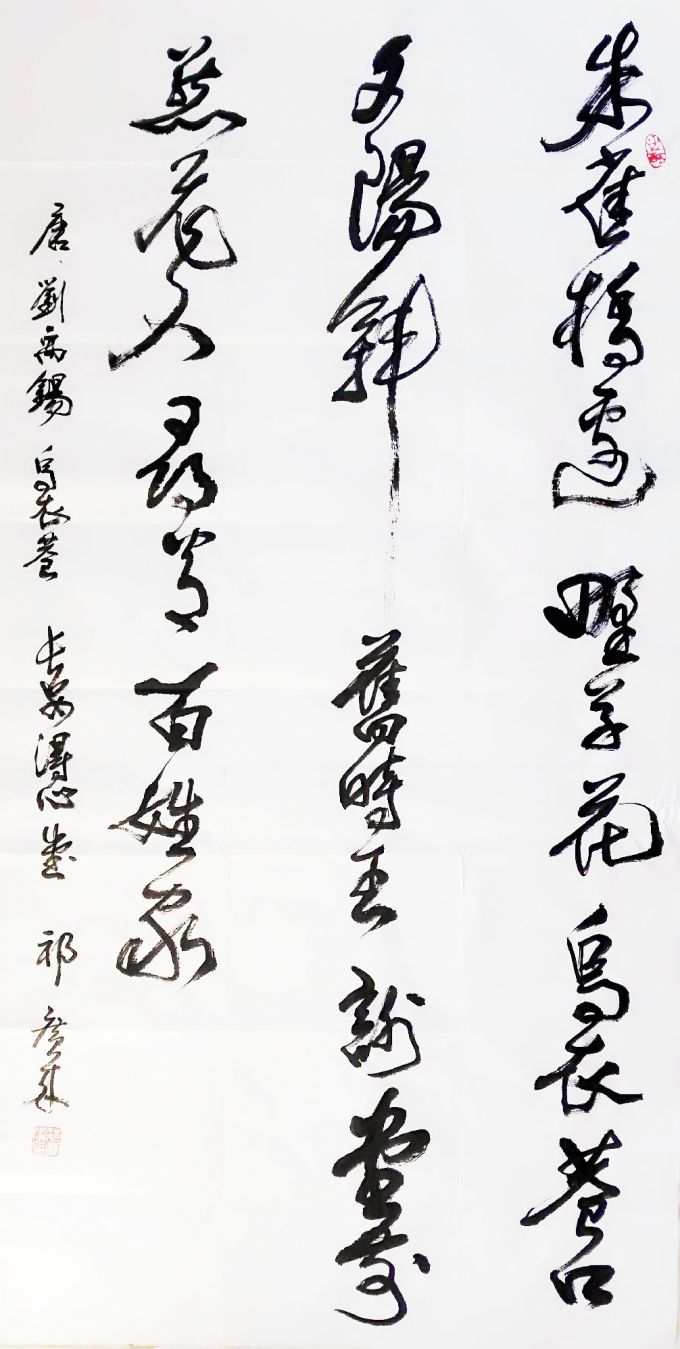 朱雀橋邊野草花烏衣巷口
夕陽斜舊時王謝堂前
燕飛入尋常百姓家
唐劉禹錫烏衣巷 心堂 祁廣